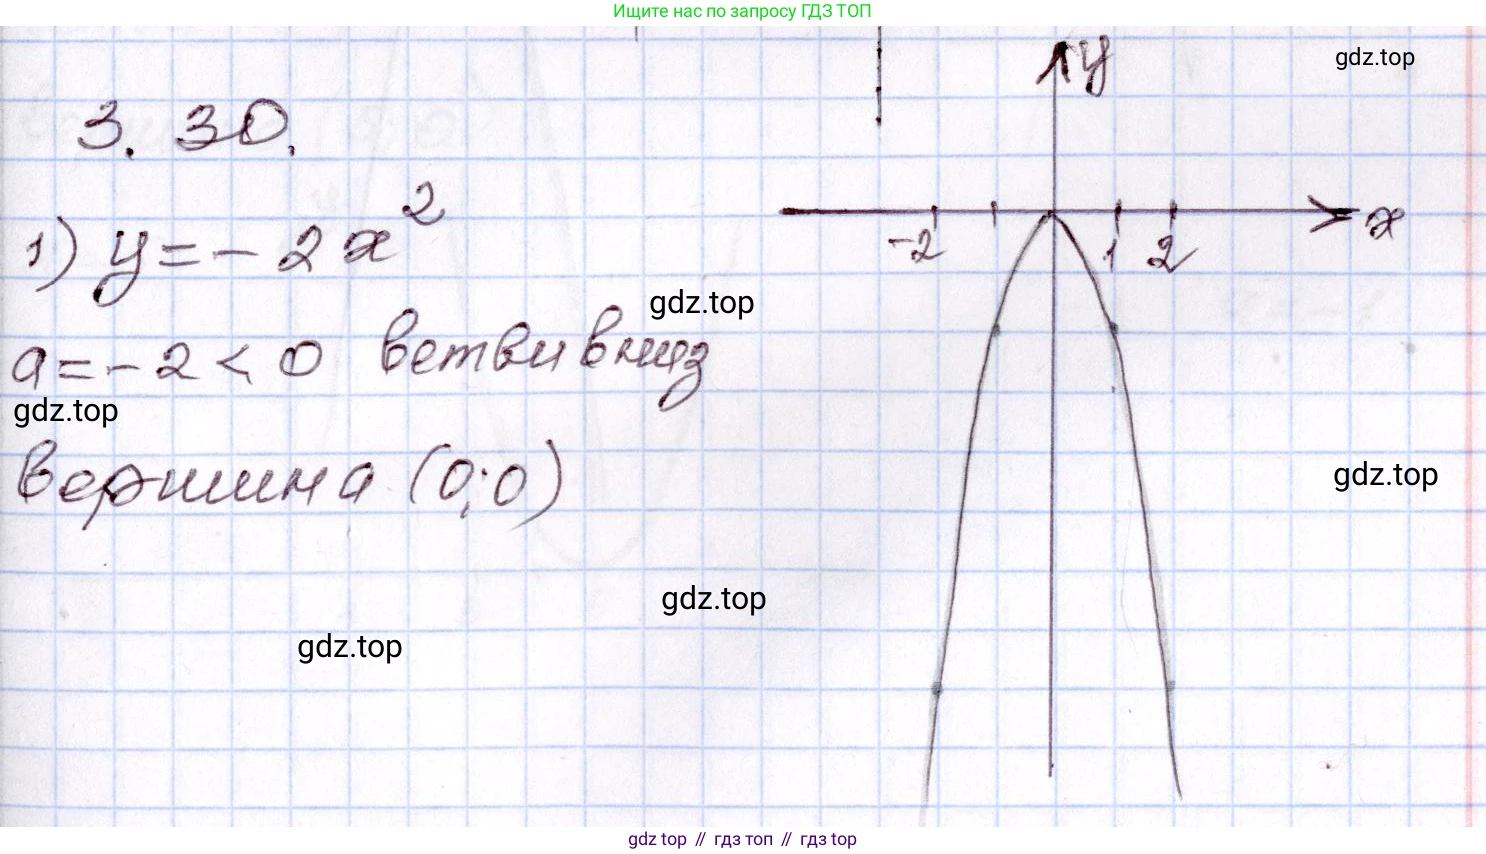 Ищите нас по запросу ГДЗ ТОП
gdz.top
3.30.
1) y = - 2x²
a = - 2 < 0 ветви вниз
gdz.top
gdz.top
вершина (0;0)
gdz.top
gdz.top
gdz.top
y
x
-2
1
2
gdz top // гдз топ // гдз top